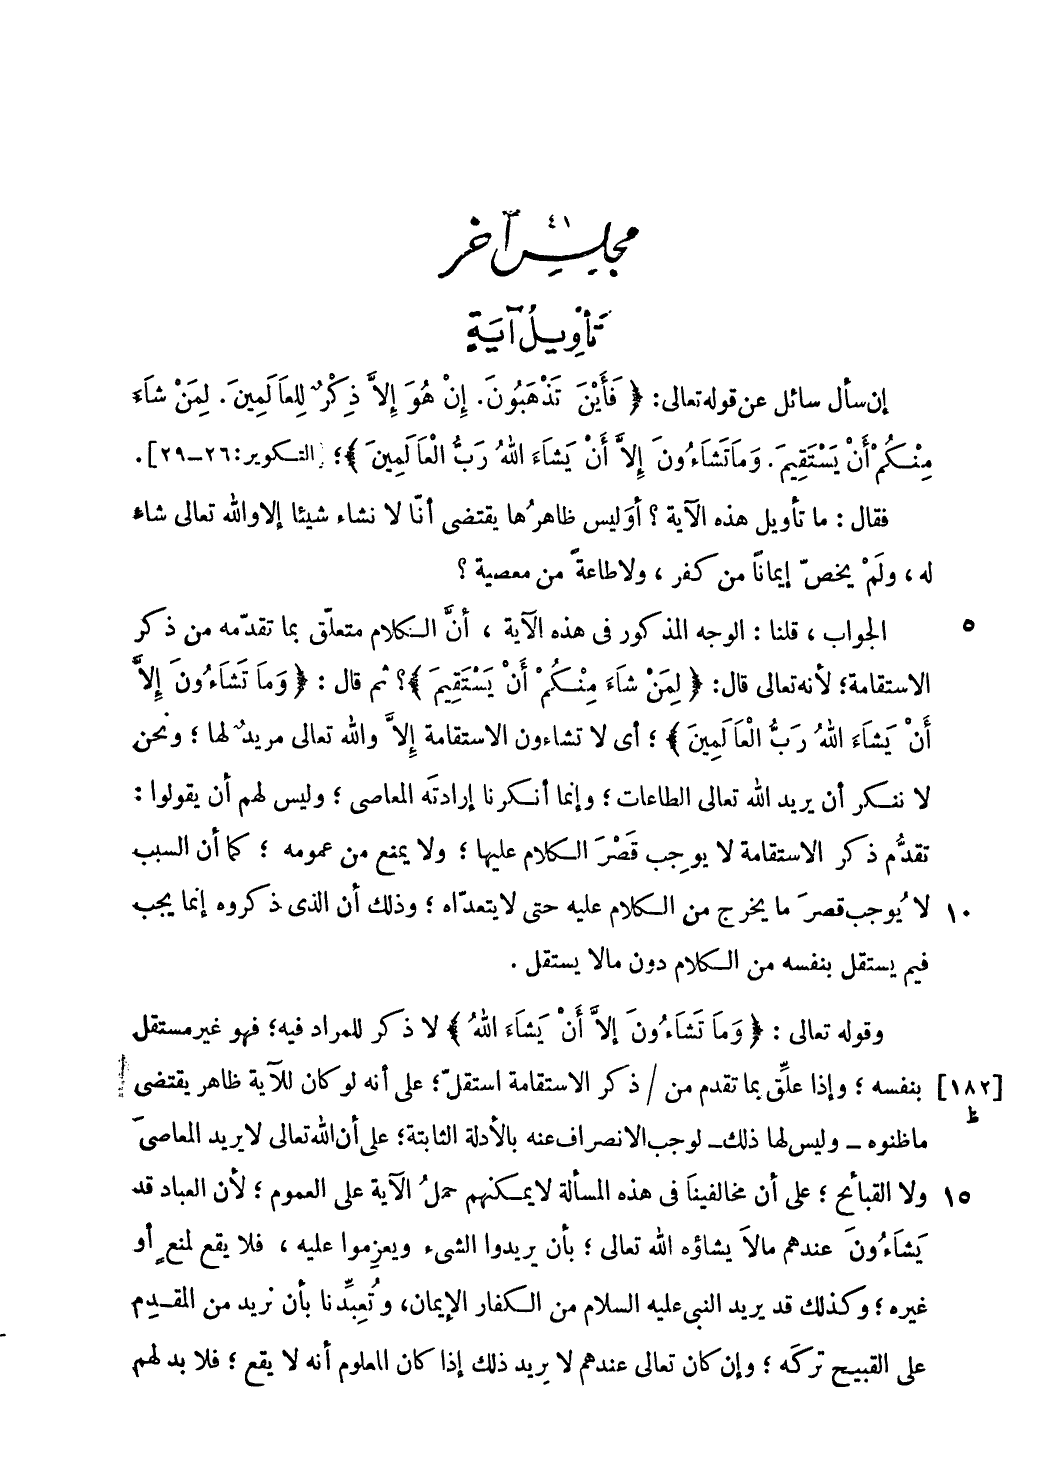 ٤١
مجلس آخر
تأويل آية
إن سأل سائل عن قوله تعالى: ﴿ فَأَيْنَ تَذْهَبُونَ. إِنْ هُوَ إِلاَّ ذِكْرٌ لِلعَالَمِينَ. لِمَنْ شَاءَ
مِنْكُمْ أَنْ يَسْتَقِيمَ. وَمَا تَشَاءُونَ إِلاَّ أَنْ يَشَاءَ اللهُ رَبُّ الْعَالَمِينَ ﴾؛ [التكوير: ٢٦-٢٩].
فقال : ما تأويل هذه الآية ؟ أوَليس ظاهرُها يقتضى أنّا لا نشاء شيئا إلا والله تعالى شاءَ
له ، ولَمْ يخصّ إيماناً من كفر ، ولا طاعةً من معصية ؟
الجواب ، قلنا : الوجه المذكور فى هذه الآية ، أنَّ الكلام متعلّق بما تقدّمه من ذكر ٥
الاستقامة؛ لأنه تعالى قال: ﴿ لِمَنْ شَاءَ مِنْكُمْ أَنْ يَسْتَقِيمَ ﴾؟ ثم قال : ﴿ وَمَا تَشَاءُونَ إِلاَّ
أَنْ يَشَاءَ اللهُ رَبُّ الْعَالَمِينَ ﴾ ؛ أى لا تشاءون الاستقامة إلاَّ والله تعالى مريدٌ لها ؛ ونحن
لا ننكر أن يريد الله تعالى الطاعات ؛ وإنما أنكرنا إرادتَه المعاصى ؛ وليس لهم أن يقولوا :
تقدُّم ذكر الاستقامة لا يوجِب قَصْرَ الكلام عليها ؛ ولا يمنع من عمومه ؛ كما أن السبب
لا يُوجب قصرَ ما يخرج من الكلام عليه حتى لا يتعدّاه ؛ وذلك أن الذى ذكروه إنما يجب ١٠
فيم يستقل بنفسه من الكلام دون مالا يستقل .
وقوله تعالى : ﴿ وَمَا تَشَاءُونَ إلاَّ أَنْ يَشَاءَ اللهُ ﴾ لا ذكر للمراد فيه؛ فهو غير مستقل
[١٨٢] بنفسه ؛ وإذا علِّق بما تقدم من / ذكر الاستقامة استقلّ؛ على أنه لو كان للآية ظاهر يقتضى
ظ
ماظنوه – وليس لها ذلك – لوجب الانصراف عنه بالأدلة الثابتة؛ على أن الله تعالى لا يريد المعاصىَ
ولا القبائح ؛ على أن مخالفيناَ فى هذه المسألة لا يمكنهم حملُ الآية على العموم ؛ لأن العباد قد ١٥
يَشَاءُونَ عندهم مالاَ يشاؤه الله تعالى ؛ بأن يريدوا الشىء ويعزِموا عليه ، فلا يقع لمنعٍ أو
غيره ؛ وكذلك قد يريد النبى عليه السلام من الكفار الإيمان، وتُعِبِّدنا بأن نريد من المقدِم
على القبيح تركَه ؛ وإن كان تعالى عندهم لا يريد ذلك إذا كان المعلوم أنه لا يقع ؛ فلا بد لهم